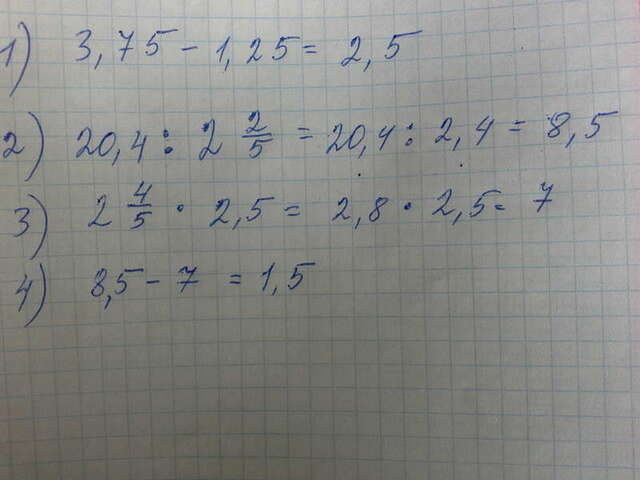 1) 3,75 - 1,25 = 2,5
2) 20,4 : 2 2/5 = 20,4 : 2,4 = 8,5
3) 2 4/5 · 2,5 = 2,8 · 2,5 = 7
4) 8,5 - 7 = 1,5